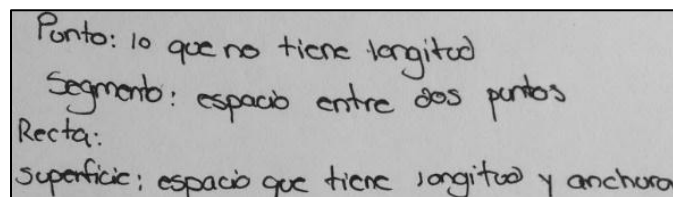 Punto: lo que no tiene longitud
Segmento: espacio entre dos puntos
Recta:
superficie: espacio que tiene longitud y anchura